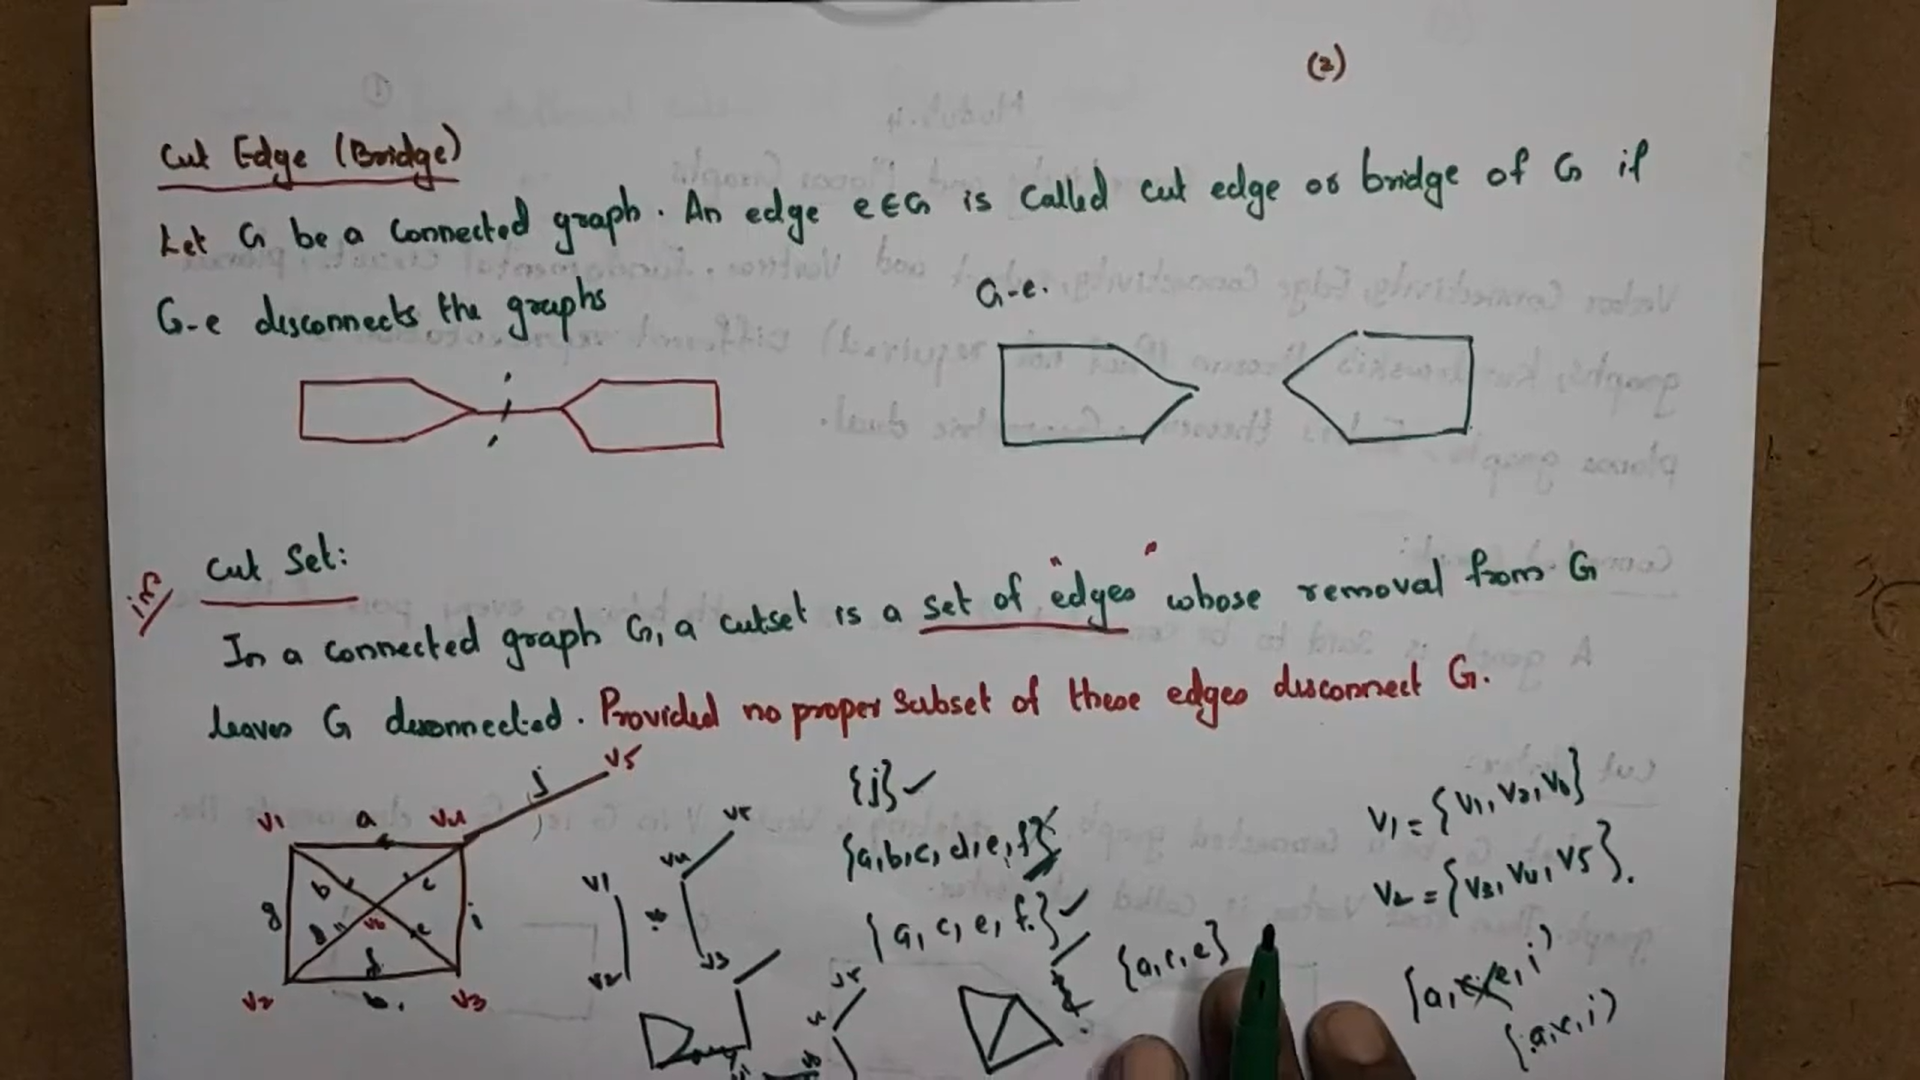 (2)
Cut Edge (Bridge)
Let G be a connected graph. An edge e∈G is called cut edge or bridge of G if
G-e disconnects the graphs
G-e.
Cut Set:
In a connected graph G, a cutset is a set of "edges" whose removal from G
leaves G disconnected. Provided no proper subset of these edges disconnect G.
v5
j
v1 a v4
b c
g v6 i
e
f
v2 v3
v5
v4
v1
v2
v3
{j} ✓
{a,b,c,d,e,f}
{a, c, e, f.} ✓
{a,c,e}
V1 = {v1, v2, v6}
V2 = {v3, v4, v5}.
{a,c,e,i}
{a,c,i}